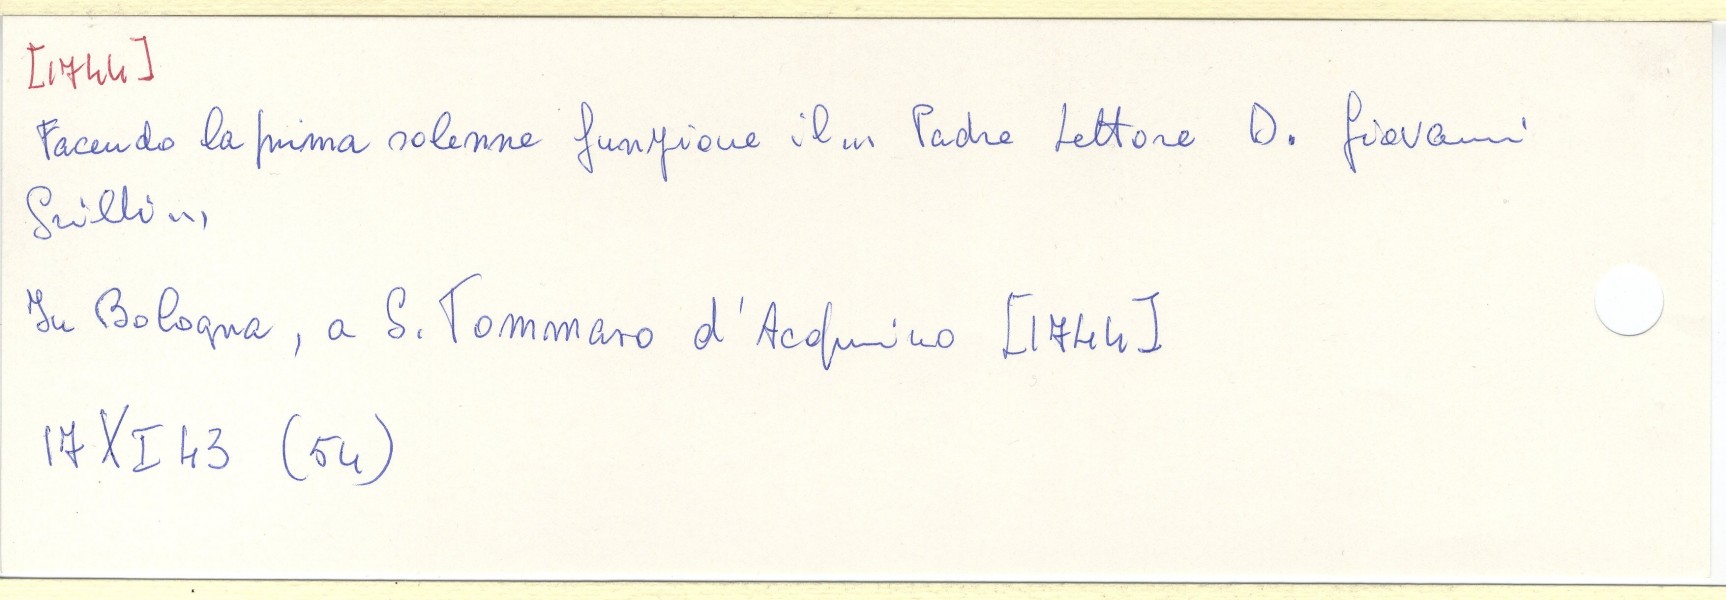 [1744]
Facendo la prima solenne funzione il m Padre Lettore D. Giovanni
Grillin,
In Bologna, a S. Tommaso d'Acquino [1744]
17 XI 43 (54)